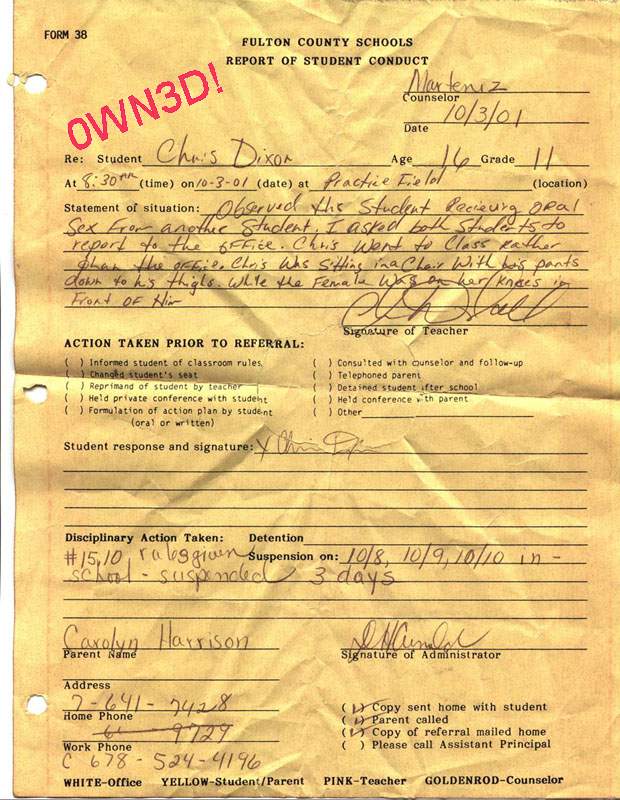 FORM 38
FULTON COUNTY SCHOOLS
REPORT OF STUDENT CONDUCT
0WN3D!
Marteniz
Counselor
10/3/01
Date
Re: Student Chris Dixon Age 16 Grade 11
At 8:30 AM (time) on 10-3-01 (date) at Practice Field (location)
Statement of situation: Observed this Student Recieving oral
Sex From another Student. I asked both Students to
report to the office. Chris Went to Class Rather
than the office. Chris Was Sitting in a Chair With his pants
down to his thighs. While the Female Was on her knees in
Front OF Him
Signature of Teacher
ACTION TAKEN PRIOR TO REFERRAL:
( ) Informed student of classroom rules
( ) Changed student's seat
( ) Reprimand of student by teacher
( ) Held private conference with student
( ) Formulation of action plan by student
(oral or written)
( ) Consulted with counselor and follow-up
( ) Telephoned parent
( ) Detained student after school
( ) Held conference with parent
( ) Other
Student response and signature: X Chris Dixon
Disciplinary Action Taken: Detention
#15,10 rules given Suspension on: 10/8, 10/9, 10/10 in -
school - suspended 3 days
Carolyn Harrison
Parent Name
Signature of Administrator
Address
7-641-7428
Home Phone
9729
Work Phone
C 678-524-4196
(✓) Copy sent home with student
(✓) Parent called
(✓) Copy of referral mailed home
( ) Please call Assistant Principal
WHITE-Office YELLOW-Student/Parent PINK-Teacher GOLDENROD-Counselor